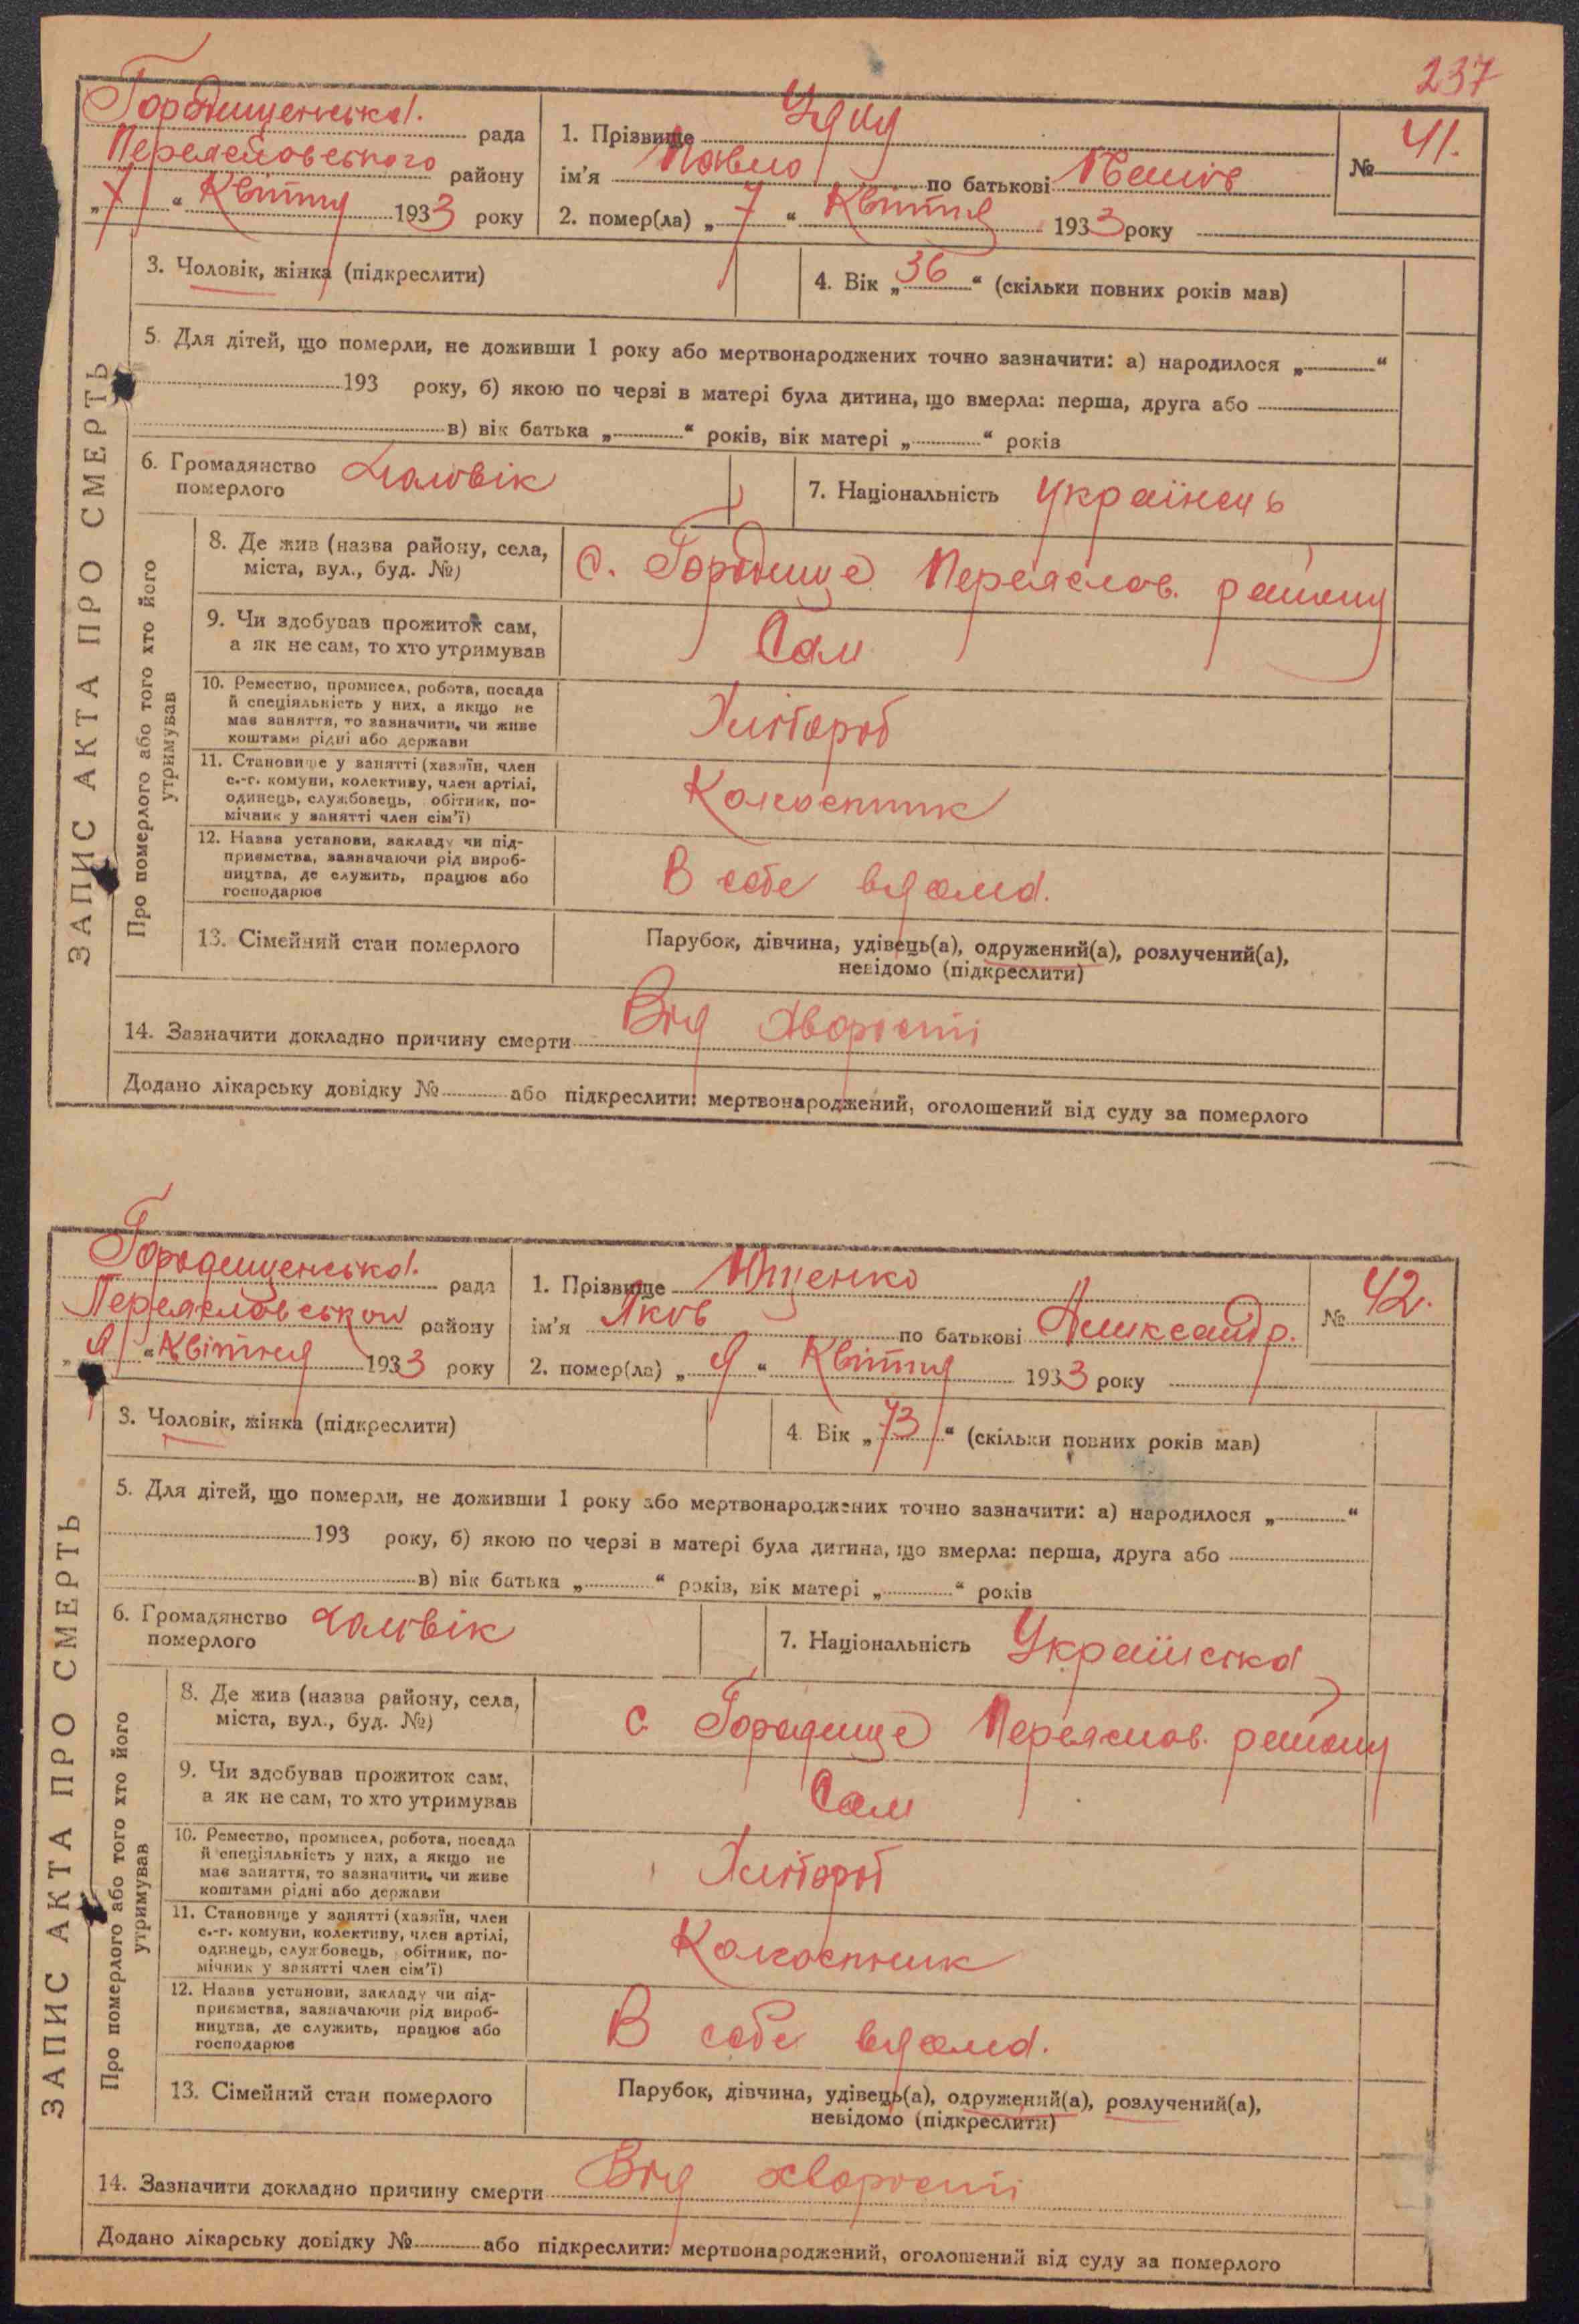 237
Городищенська рада
Переяславського району
„7“ Квітня 1933 року
1. Прізвище
№ 41.
ім'я Павло по батькові
2. помер(ла) „7“ Квітня 1933 року
3. Чоловік, жінка (підкреслити)
4. Вік „36“ (скільки повних років мав)
5. Для дітей, що померли, не доживши 1 року або мертвонароджених точно зазначити: а) народилося „ “
193 року, б) якою по черзі в матері була дитина, що вмерла: перша, друга або
в) вік батька „ “ років, вік матері „ “ років
6. Громадянство
померлого
Чоловік
7. Національність Українець
ЗАПИС АКТА ПРО СМЕРТЬ
Про померлого або того хто його
утримував
8. Де жив (назва району, села,
міста, вул., буд. №)
с. Городище Переяслов. району
9. Чи здобував прожиток сам,
а як не сам, то хто утримував
Сам
10. Ремество, промисел, робота, посада
й спеціяльність у них, а якщо не
має заняття, то зазначити, чи живе
коштами рідні або держави
Хлібороб
11. Становище у занятті (хазяїн, член
с.-г. комуни, колективу, член артілі,
одинець, службовець, обітник, по-
мічник у занятті член сім'ї)
Колгоспник
12. Назва установи, закладу чи під-
приємства, зазначаючи рід вироб-
ництва, де служить, працює або
господарює
В себе вдома.
13. Сімейний стан померлого
Парубок, дівчина, удівець(а), одружений(а), розлучений(а),
невідомо (підкреслити)
14. Зазначити докладно причину смерти Від хворости
Додано лікарську довідку № або підкреслити: мертвонароджений, оголошений від суду за померлого
Городищенська рада
Переясловського району
„9“ Квітня 1933 року
1. Прізвище Ющенко
№ 42.
ім'я Яков по батькові Аликсандр.
2. помер(ла) „9“ Квітня 1933 року
3. Чоловік, жінка (підкреслити)
4. Вік „73“ (скільки повних років мав)
5. Для дітей, що померли, не доживши 1 року або мертвонароджених точно зазначити: а) народилося „ “
193 року, б) якою по черзі в матері була дитина, що вмерла: перша, друга або
в) вік батька „ “ років, вік матері „ “ років
6. Громадянство
померлого
Чоловік
7. Національність Українська
ЗАПИС АКТА ПРО СМЕРТЬ
Про померлого або того хто його
утримував
8. Де жив (назва району, села,
міста, вул., буд. №)
с Городище Переяслов. району
9. Чи здобував прожиток сам,
а як не сам, то хто утримував
Сам
10. Ремество, промисел, робота, посада
й спеціяльність у них, а якщо не
має заняття, то зазначити, чи живе
коштами рідні або держави
Хлібороб
11. Становище у занятті (хазяїн, член
с.-г. комуни, колективу, член артілі,
одинець, службовець, обітник, по-
мічник у занятті член сім'ї)
Колгоспник
12. Назва установи, закладу чи під-
приємства, зазначаючи рід вироб-
ництва, де служить, працює або
господарює
В себе вдома.
13. Сімейний стан померлого
Парубок, дівчина, удівець(а), одружений(а), розлучений(а),
невідомо (підкреслити)
14. Зазначити докладно причину смерти Від хворости
Додано лікарську довідку № або підкреслити: мертвонароджений, оголошений від суду за померлого